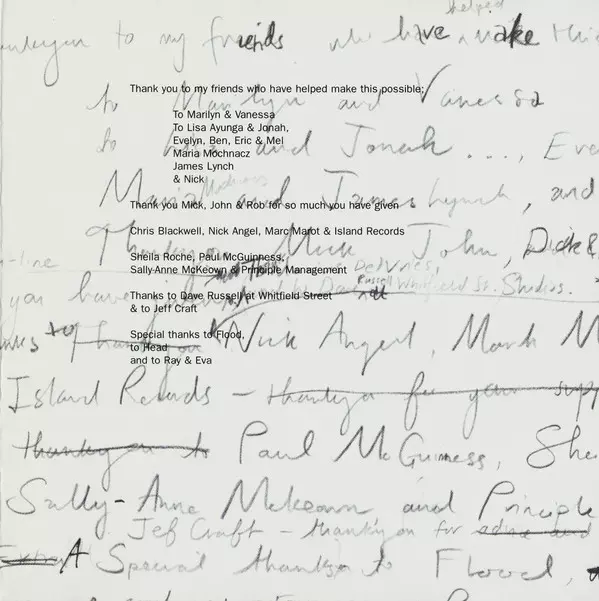 helped
to my friends who have make this
Thank you to my friends who have helped make this possible;
to Marilyn and Vanessa
To Marilyn & Vanessa
To Lisa Ayunga & Jonah,
Evelyn, Ben, Eric & Mel
Maria Mochnacz
James Lynch
& Nick
to and Jonah...., Eve
Maria and James Lynch, and
Thank you Mick, John & Rob for so much you have given
Chris Blackwell, Nick Angel, Marc Marot & Island Records
Mick John, Dick &
Sheila Roche, Paul McGuinness,
Sally-Anne McKeown & Principle Management
you have
Russell Whitfield St. Studios.
Thanks to Dave Russell at Whitfield Street
& to Jeff Craft
Special thanks to Flood,
to Head
and to Ray & Eva
Nick Angel, Mark M
Island Records - thankyou for your supp
thankyou to Paul McGuiness, She
Sally-Anne Mckeown and Principle
Jef Craft - thankyou for
Extra A Special thanks to Flood,